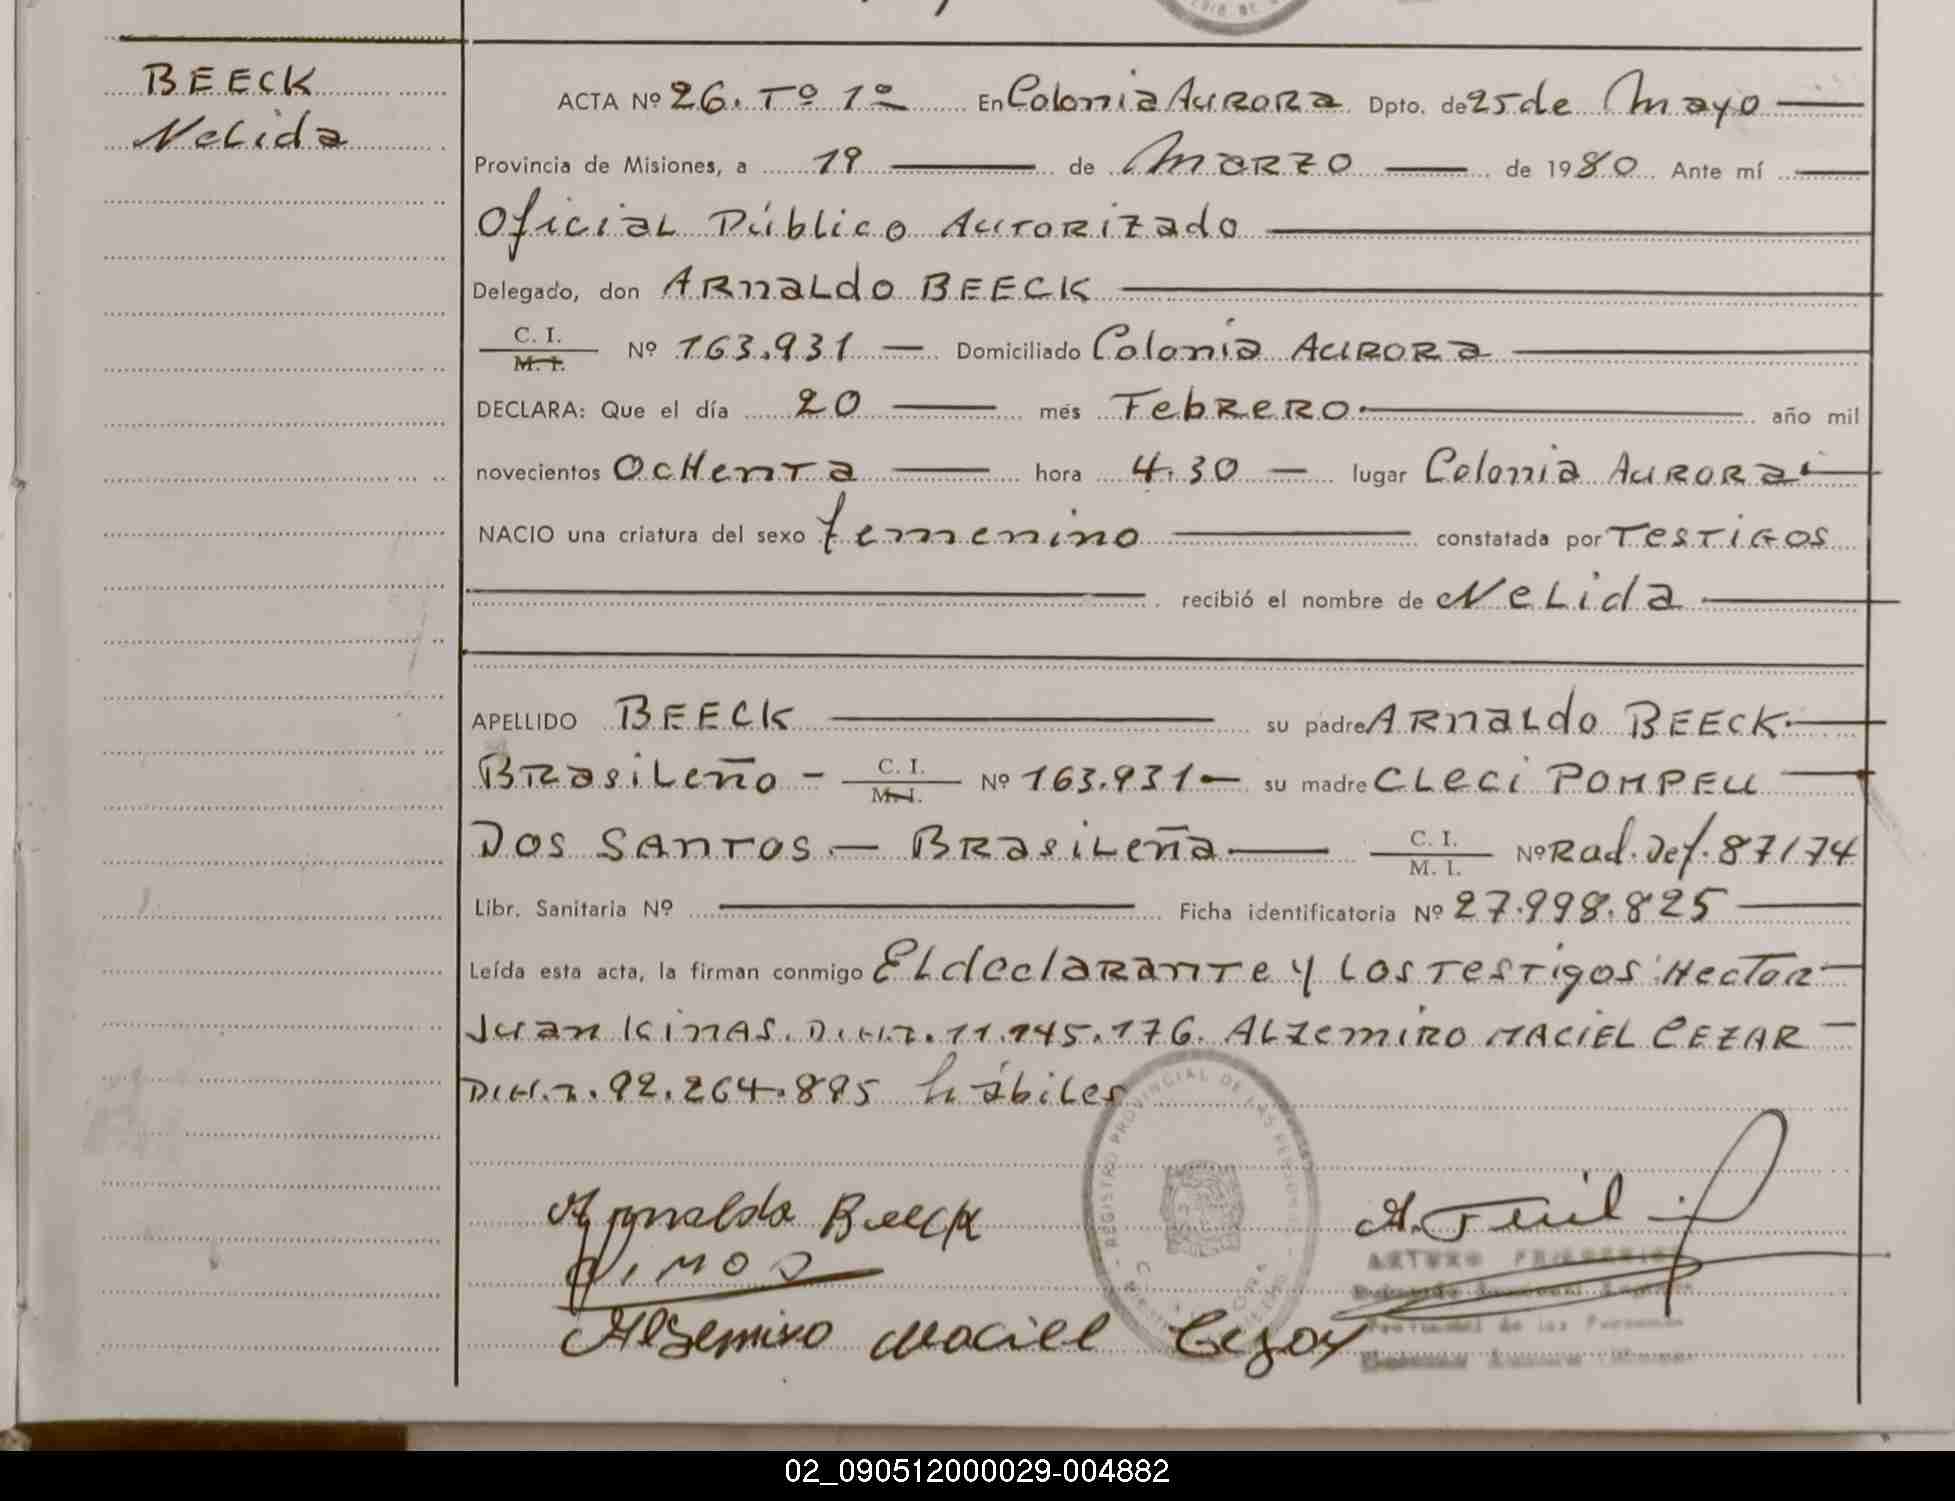 BEECK
Nelida
ACTA Nº 26. Tº 1º En Colonia Aurora Dpto. de 25 de Mayo
Provincia de Misiones, a 19 de Marzo de 1980 Ante mí
Oficial Público Autorizado
Delegado, don Arnaldo BEECK
C. I.
M. I.
Nº 163.931 Domiciliado Colonia Aurora
DECLARA: Que el día 20 mes Febrero año mil
novecientos Ochenta hora 4.30 lugar Colonia Aurora
NACIO una criatura del sexo femenino constatada por Testigos
recibió el nombre de Nelida
APELLIDO BEECK su padre Arnaldo BEECK
Brasileño - C. I. M. I. Nº 163.931 su madre CLECI POMPEU
DOS SANTOS - Brasileña C. I. M. I. Nº Rad. Def. 87/74
Libr. Sanitaria Nº Ficha identificatoria Nº 27.998.825
Leída esta acta, la firman conmigo El declarante y los testigos Hector
Juan KINAS. D.N.I. 11.145.176. ALZEMIRO MACIEL CEZAR
D.N.I. 92.264.895 hábiles
REGISTRO PROVINCIAL DE LAS PERSONAS
Arnaldo Beeck
ARTURO
Alzemiro Maciel Cezar
02_090512000029-004882